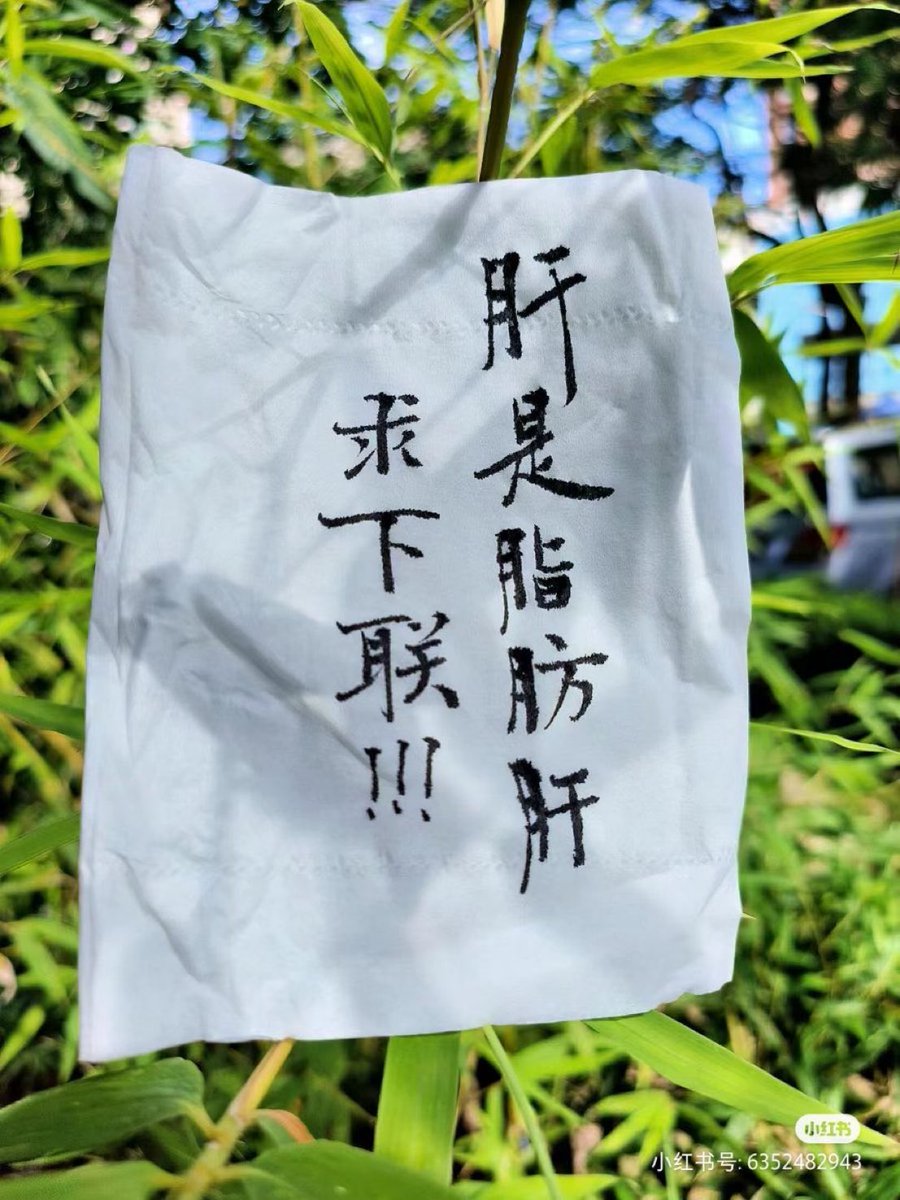 肝是脂肪肝
求下联!!!
小红书
小红书号: 6352482943